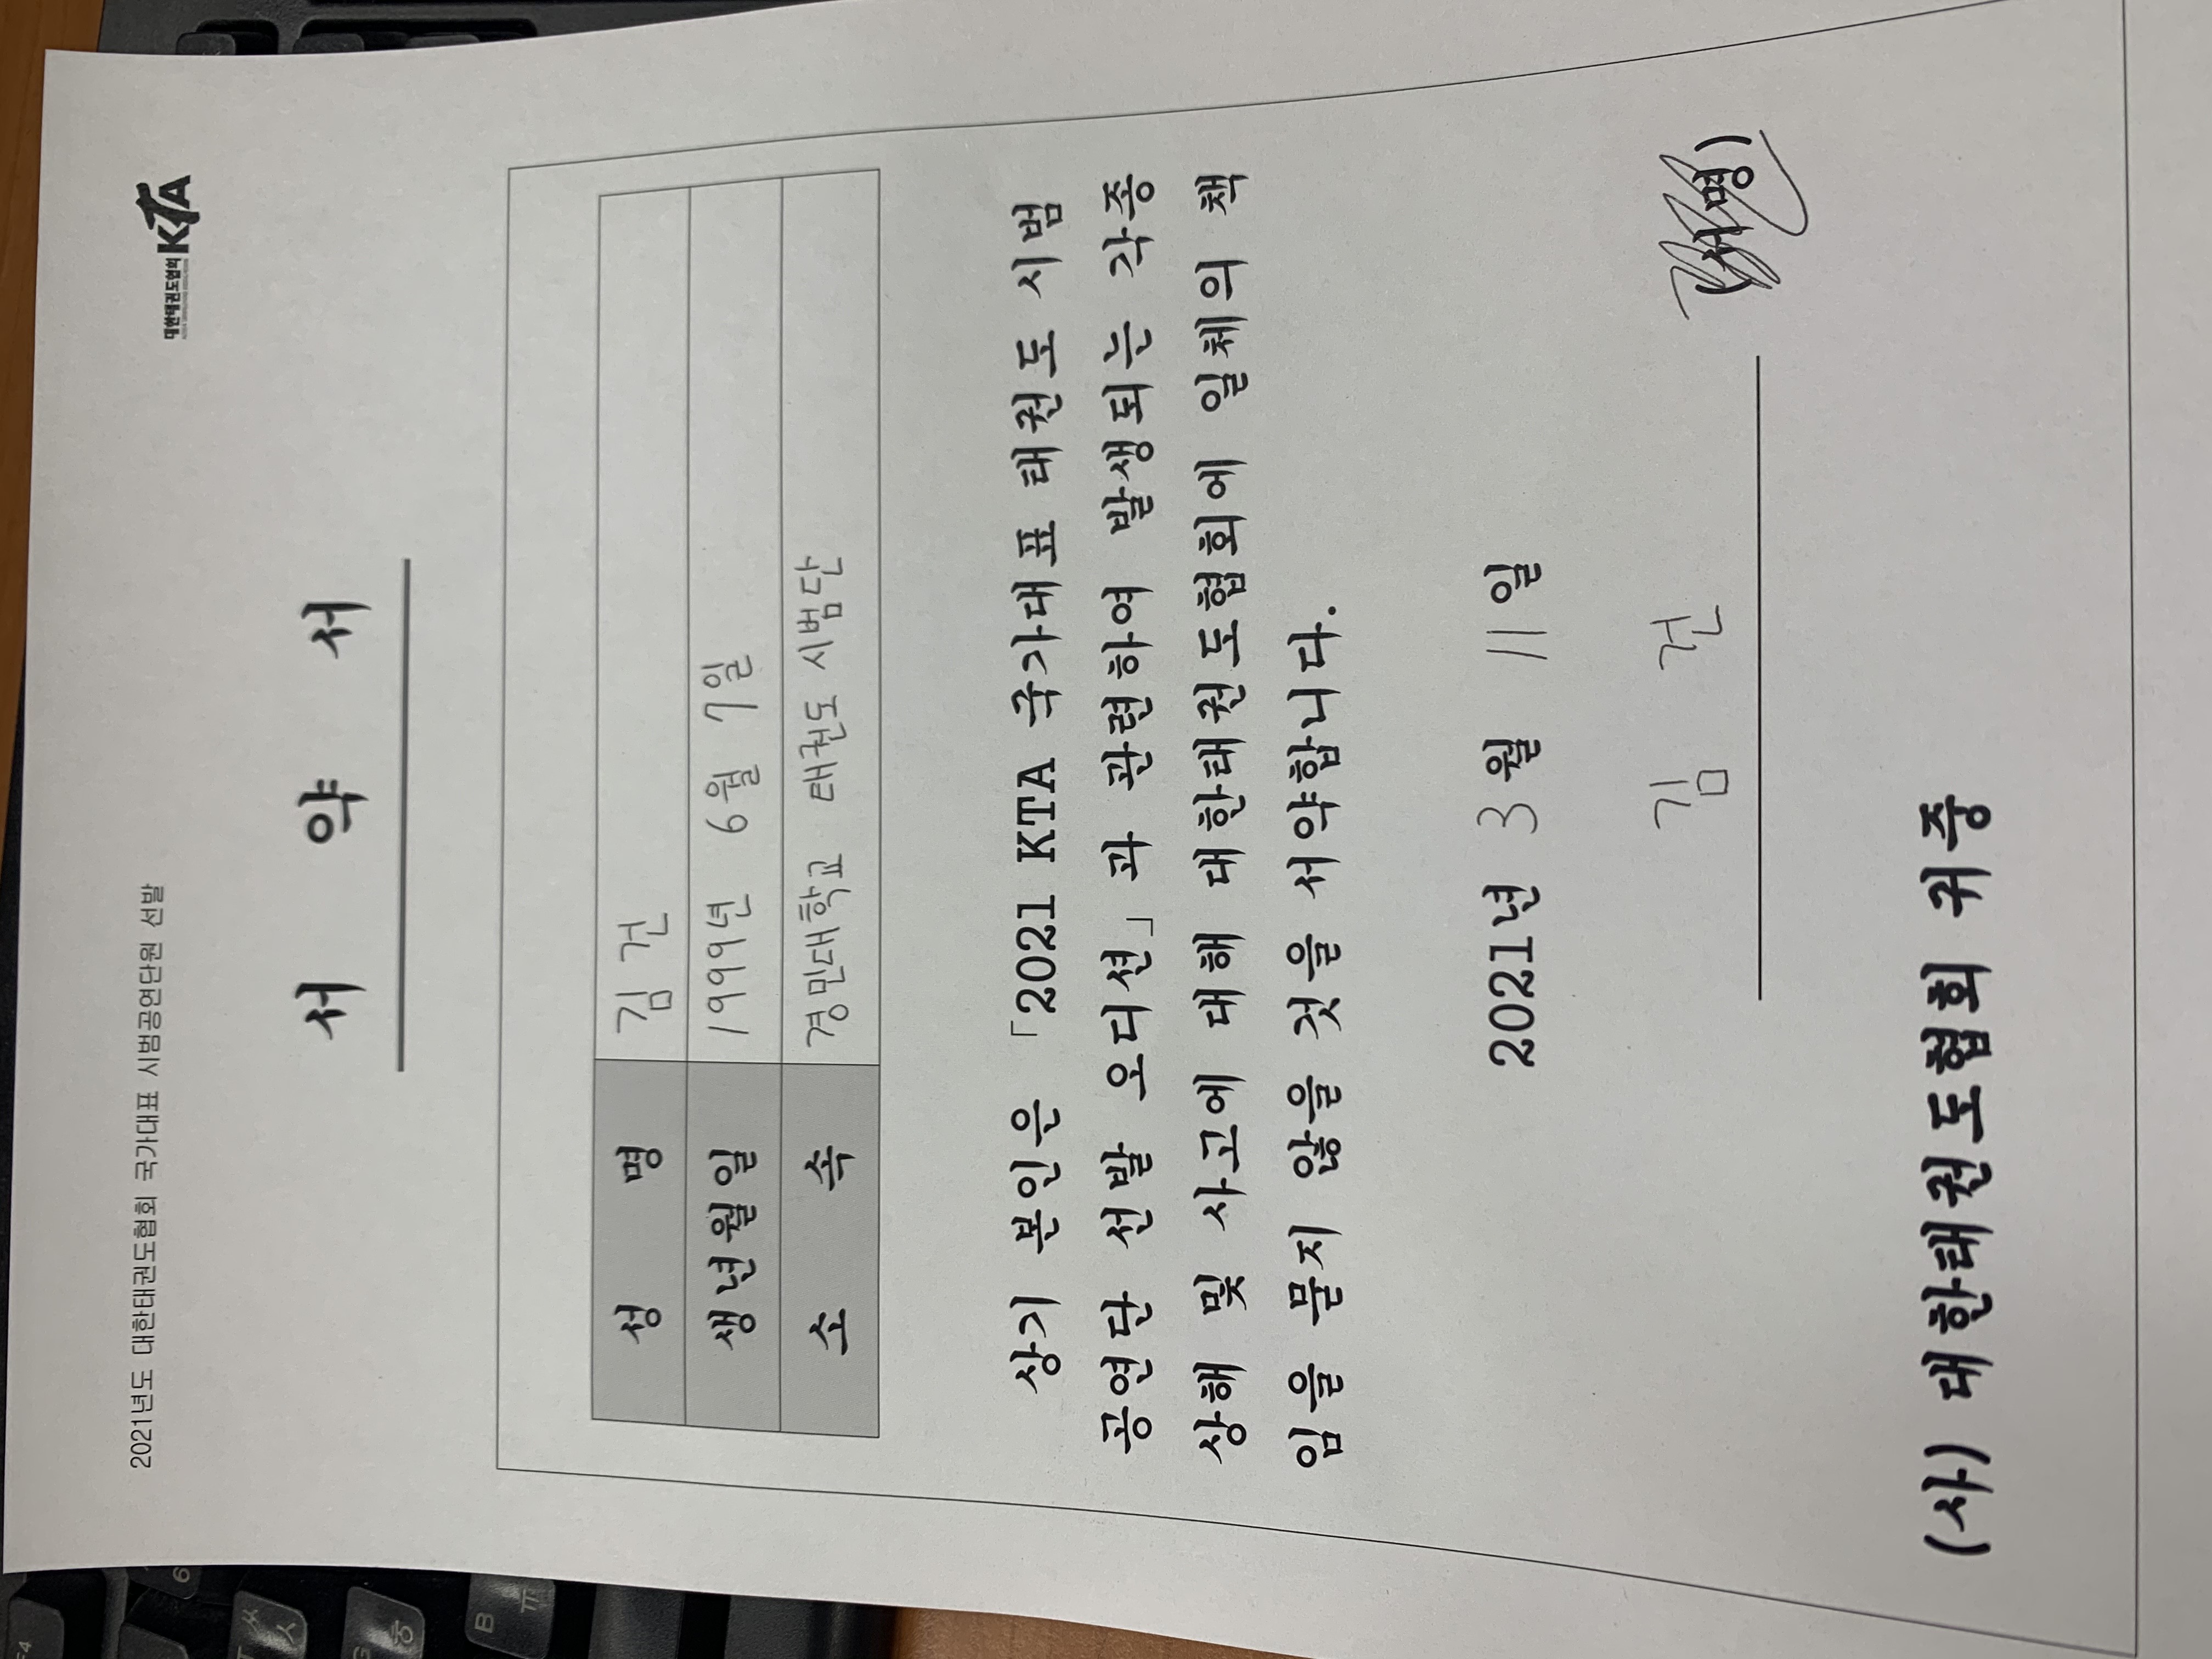 2021년도 대한태권도협회 국가대표 시범공연단원 선발
대한태권도협회 KTA
서 약 서
성 명 김 건
생년월일 1999년 6월 7일
소 속 경민대학교 태권도 시범단
상기 본인은 「2021 KTA 국가대표 태권도 시범
공연단 선발 오디션」과 관련하여 발생되는 각종
상해 및 사고에 대해 대한태권도협회에 일체의 책
임을 묻지 않을 것을 서약합니다.
2021년 3월 11일
김 건 (서명)
(사) 대한태권도협회 귀중
6
ㅆ
ㅅ
G ㅎ
B ㅠ